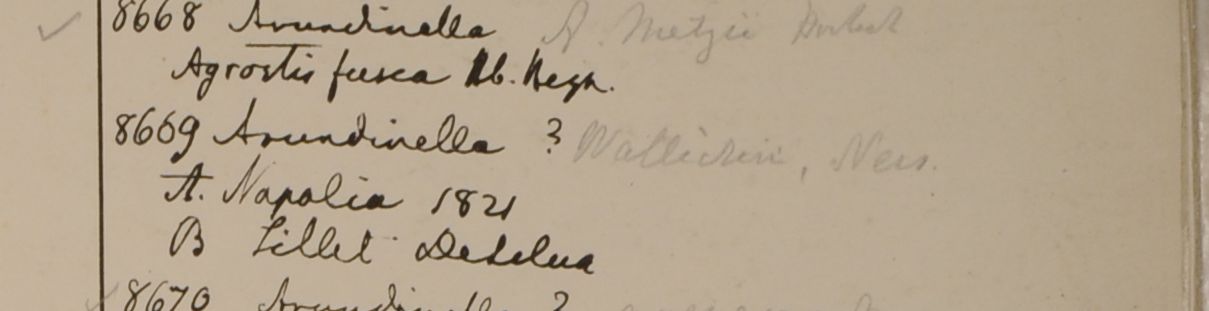 8668 Arundinella A. Metzii
Agrostis fusca Hb. Heyn.
8669 Arundinella ? Wallichii, Nees.
A. Napalia 1821
B Sillet
8670 Arundinella ?